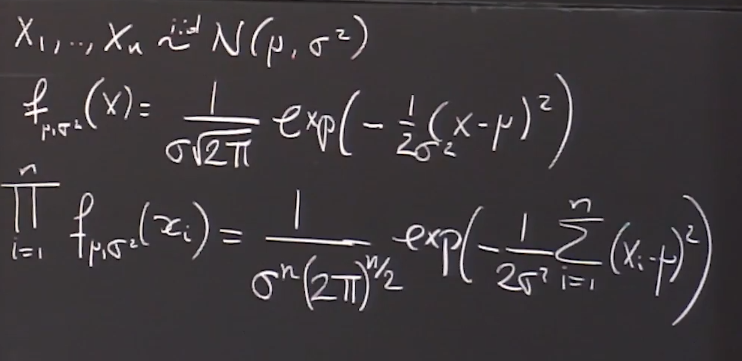 X₁,..,Xₙ ~iid N(μ,σ²)
f_{μ,σ²}(x)= 1/(σ√2π) exp(-1/2σ² (x-μ)²)
∏_{i=1}^{n} f_{μ,σ²}(xᵢ)= 1/(σⁿ(2π)^{n/2}) exp(-1/2σ² ∑_{i=1}^{n} (xᵢ-μ)²)